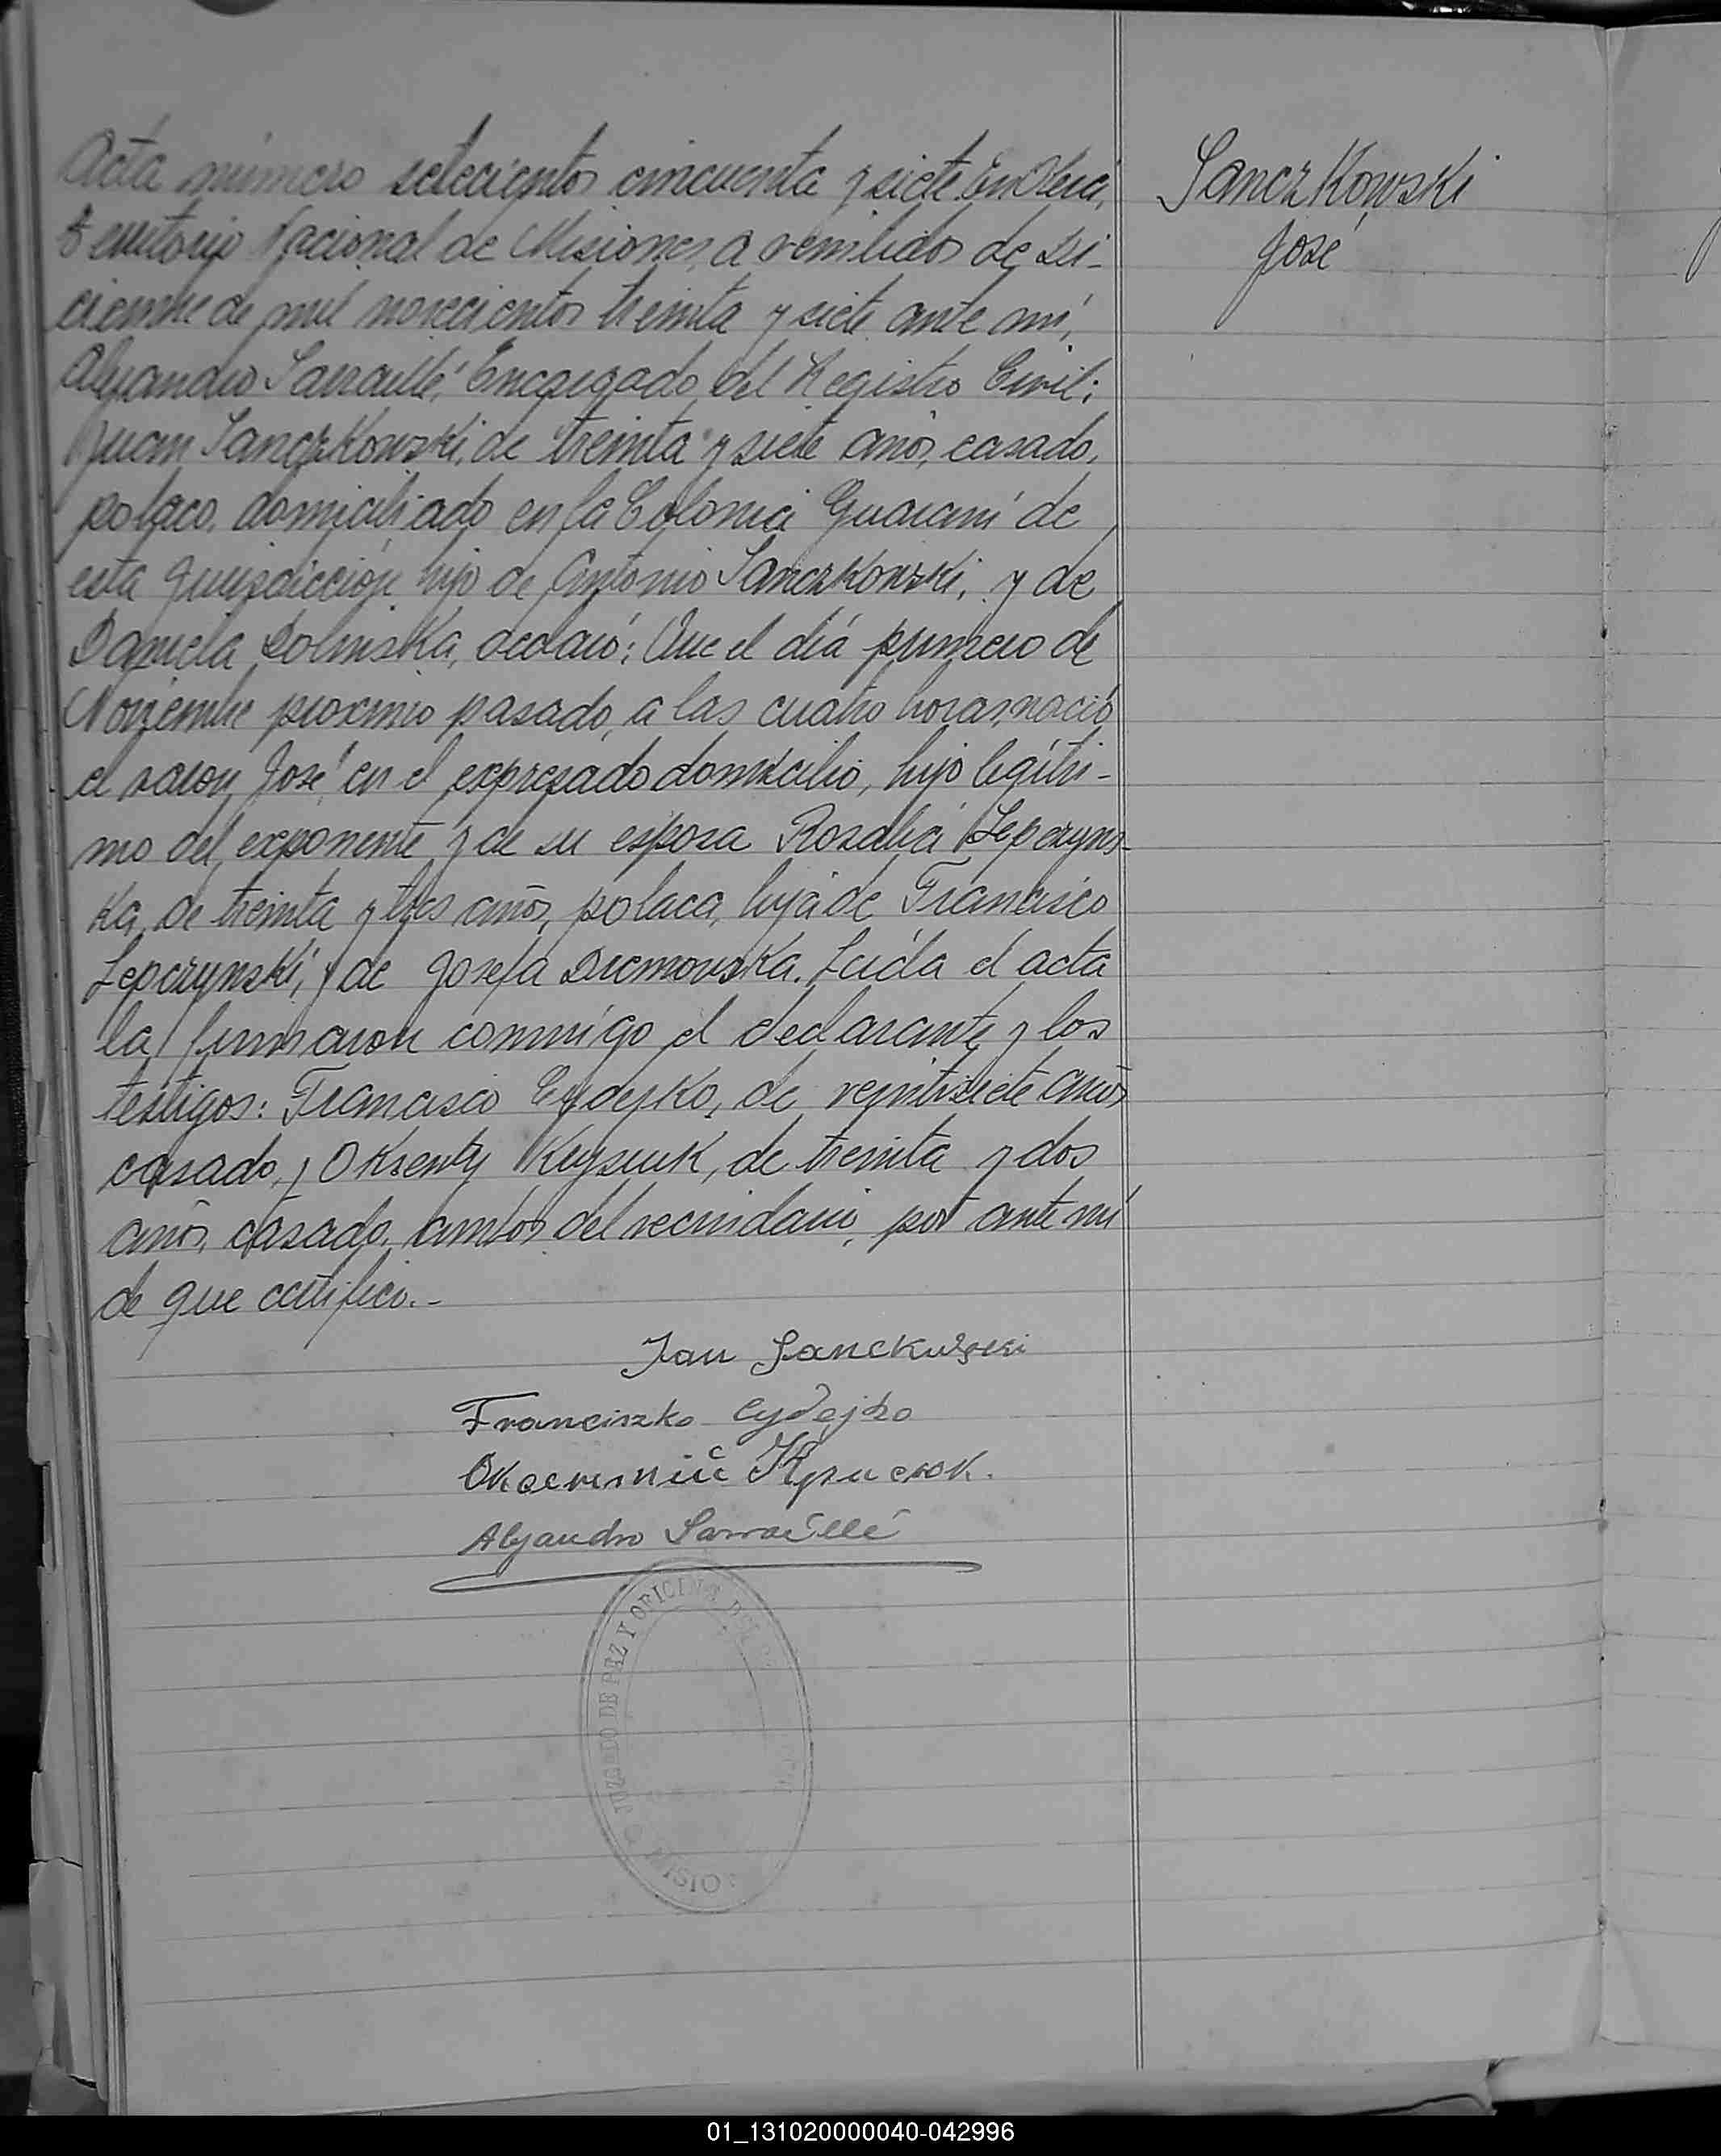 Acta número setecientos cincuenta y siete En Oberá,
Territorio Nacional de Misiones, a veintidos de Di-
ciembre de mil novecientos treinta y siete ante mí,
Alejandro Sarraillé, Encargado del Registro Civil;
Juan Sanczkowski, de treinta y siete años, casado,
polaco, domiciliado en la Colonia Guaraní de
esta Jurisdicción, hijo de Antonio Sanczkowski, y de
Daniela Dolinska, declaró: Que el día primero de
Noviembre proximo pasado, a las cuatro horas, nació
el varon José, en el expresado domicilio, hijo legíti-
mo del exponente y de su esposa Rosalia Lepczyns-
ka, de treinta y tres años, polaca, hija de Francisco
Lepczynski, y de Josefa Dremowska. Leída el acta
la firmaron conmigo el declarante y los
testigos: Francisco Cydejko, de veintisiete años
casado, y Oksenty Krysiuk, de treinta y dos
años, casado, ambos del vecindario, por ante mí
de que certifico.-
Sanczkowski
José
Jan
Franciszko Cydejko
Alejandro Sarraillé
JUZGADO DE PAZ Y OFICINA DEL
01_131020000040-042996